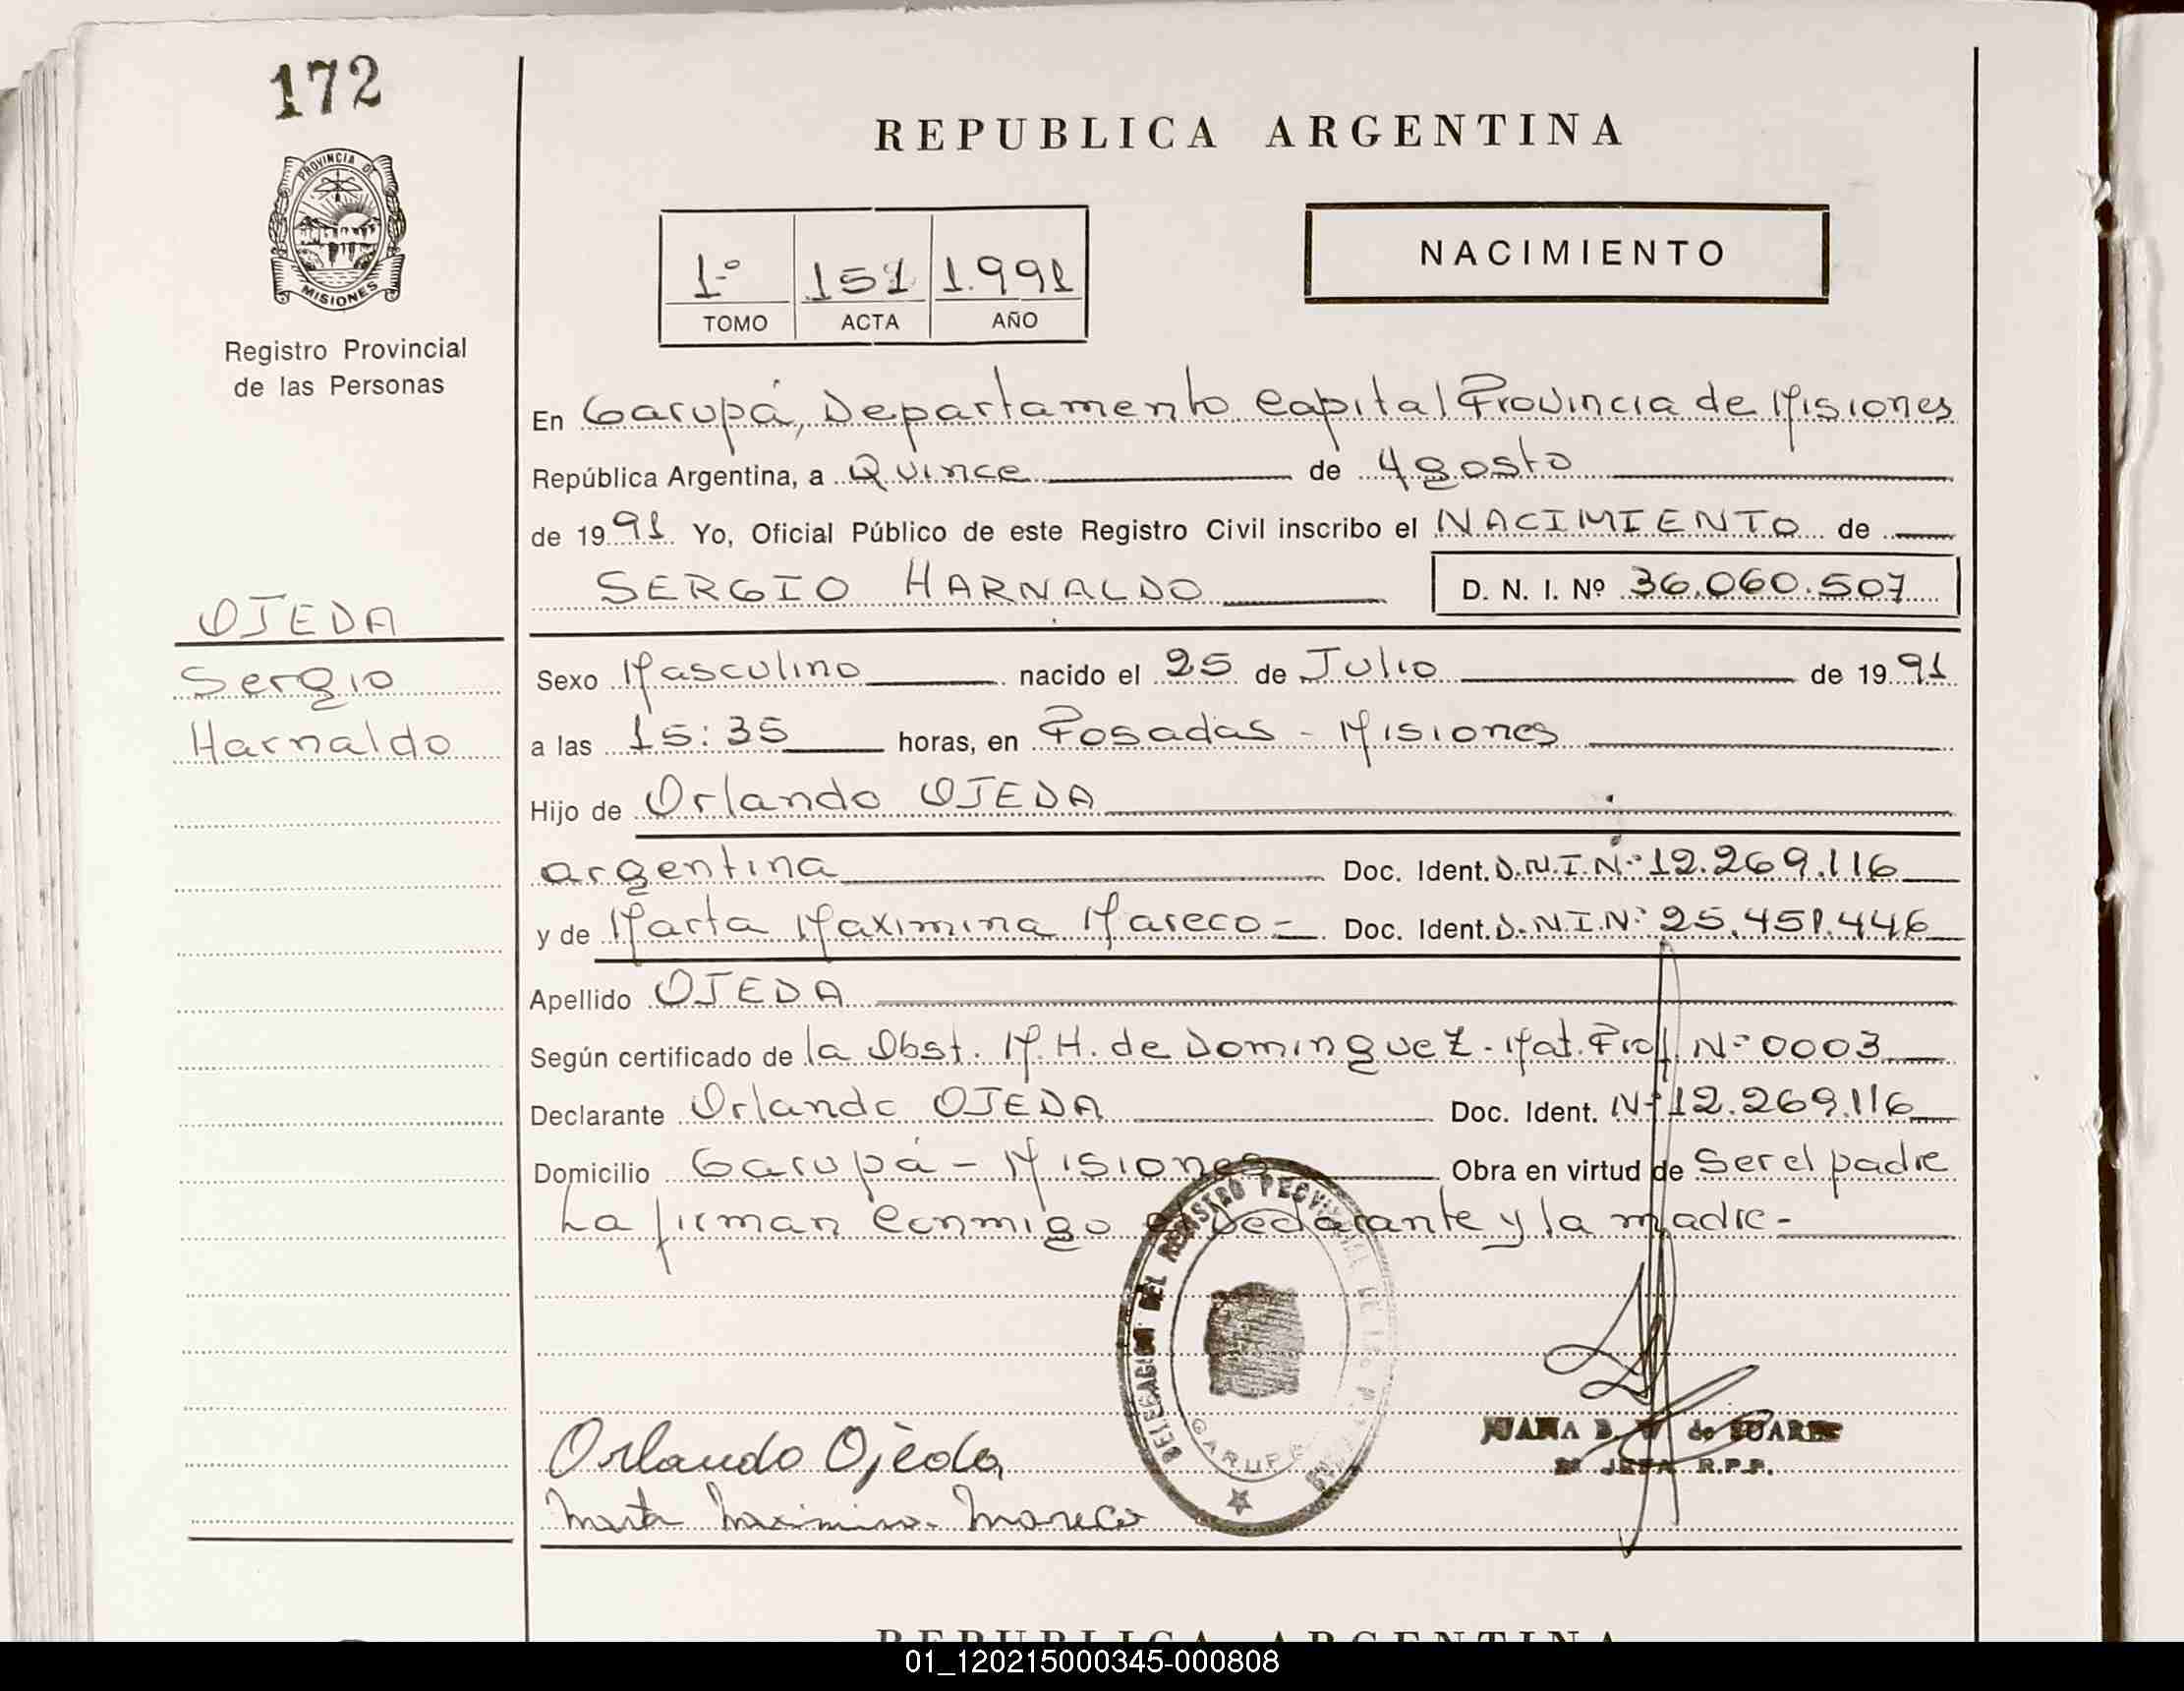 172
REPUBLICA ARGENTINA
PROVINCIA DE
MISIONES
Registro Provincial
de las Personas
1º 151 1.991
TOMO ACTA AÑO
NACIMIENTO
En Garupá, Departamento Capital Provincia de Misiones
República Argentina, a Quince de Agosto
de 1991 Yo, Oficial Público de este Registro Civil inscribo el NACIMIENTO de
SERGIO HARNALDO D. N. I. Nº 36.060.507
OJEDA
Sergio
Harnaldo
Sexo Masculino nacido el 25 de Julio de 1991
a las 15:35 horas, en Posadas - Misiones
Hijo de Orlando OJEDA
argentina Doc. Ident. D.N.I.Nº 12.269.116
y de Marta Maximina Mareco = Doc. Ident. D.N.I.Nº 25.451.446
Apellido OJEDA
Según certificado de la Obst. M.H. de Dominguez - Mat. Prof Nº 0003
Declarante Orlando OJEDA Doc. Ident. Nº 12.269.116
Domicilio Garupá - Misiones Obra en virtud de Ser el padre
La firman conmigo el Declarante y la madre -
DELEGACION DEL REGISTRO PROVINCIAL DE LAS
GARUPA
Orlando Ojeda
Marta Maximina Mareco
JUANA B. de SUAREZ
JEFA R.P.P.
REPUBLICA ARGENTINA
01_120215000345-000808